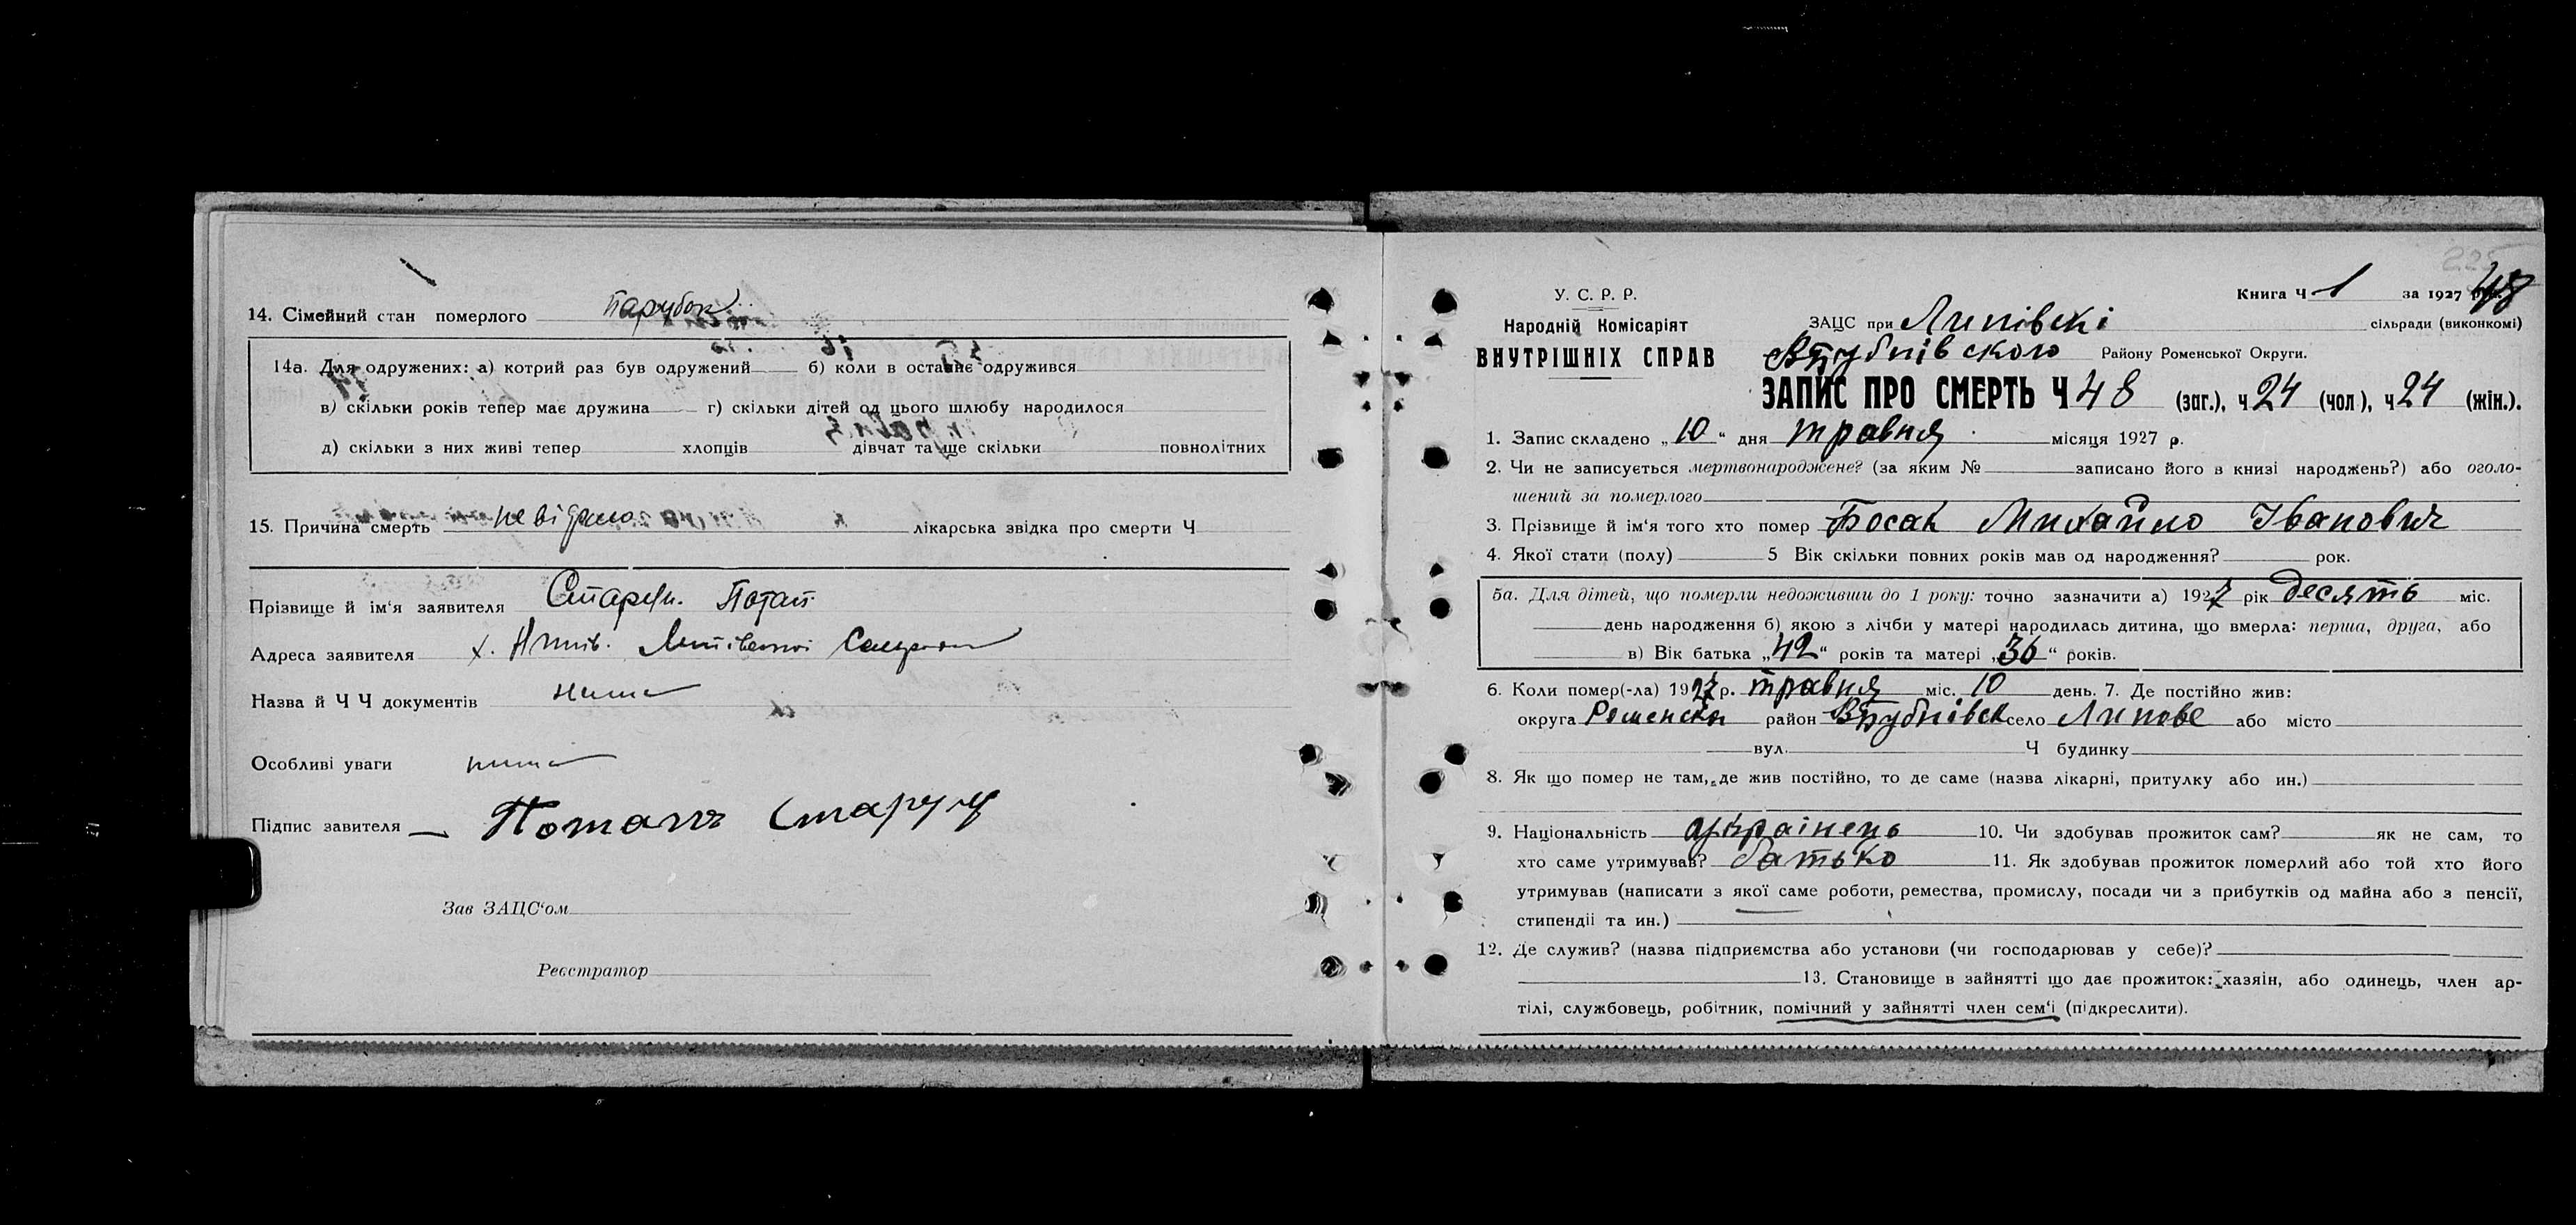 14. Сімейний стан померлого парубок
14а. Для одружених: а) котрий раз був одружений б) коли в останнє одружився
в) скільки років тепер має дружина г) скільки дітей од цього шлюбу народилося
д) скільки з них живі тепер хлопців дівчат та ще скільки повнолітних
15. Причина смерть невідомо лікарська звідка про смерти Ч
Прізвище й ім'я заявителя Потап
Адреса заявителя х.
Назва й Ч Ч документів нима
Особливі уваги нима
Підпис завителя Потапъ
Зав ЗАЦС'ом
Реєстратор
225
У. С. Р. Р.
Народній Комісаріят
ВНУТРІШНІХ СПРАВ
Книга Ч 1 за 1927 48
ЗАЦС при Липівскі сільради (виконкомі)
Району Роменської Округи.
ЗАПИС ПРО СМЕРТЬ Ч 48 (заг.), ч 24 (чол), ч 24 (жін.).
1. Запис складено „10" дня травня місяця 1927 р.
2. Чи не записується мертвонароджене? (за яким № записано його в книзі народжень?) або оголо-
шений за померлого
3. Прізвище й ім'я того хто помер Босак Михайло Іванович
4. Якої стати (полу) 5 Вік скільки повних років мав од народження? рок.
5а. Для дітей, що померли недоживши до 1 року: точно зазначити а) 1927 рік десять міс.
день народження б) якою з лічби у матері народилась дитина, що вмерла: перша, друга, або
в) Вік батька „42" років та матері „36" років.
6. Коли помер(-ла) 1927 р. травня міс. 10 день. 7. Де постійно жив:
округа Роменска район село Липове або місто
вул. Ч будинку
8. Як що помер не там, де жив постійно, то де саме (назва лікарні, притулку або ин.)
9. Національність українець 10. Чи здобував прожиток сам? як не сам, то
хто саме утримував? батько 11. Як здобував прожиток померлий або той хто його
утримував (написати з якої саме роботи, ремества, промислу, посади чи з прибутків од майна або з пенсії,
стипендії та ин.)
12. Де служив? (назва підприємства або установи (чи господарював у себе)?
13. Становище в зайнятті що дає прожиток: хазяін, або одинець, член ар-
тілі, службовець, робітник, помічний у зайнятті член сем'ї (підкреслити).